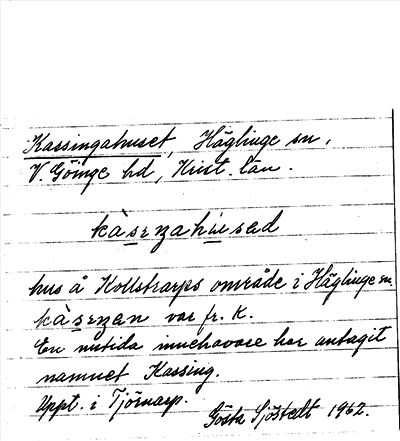 Kassingahuset, Häglinge sn,
V. Göinge hd, Krist. län.
kàsɪŋahʉsəd
hus å Kollstrarps område i Häglinge sn.
kàsɪŋan var fr. K.
En nutida innehavare har antagit
namnet Kassing.
Uppt. i Tjörnarp.
Gösta Sjöstedt 1962.